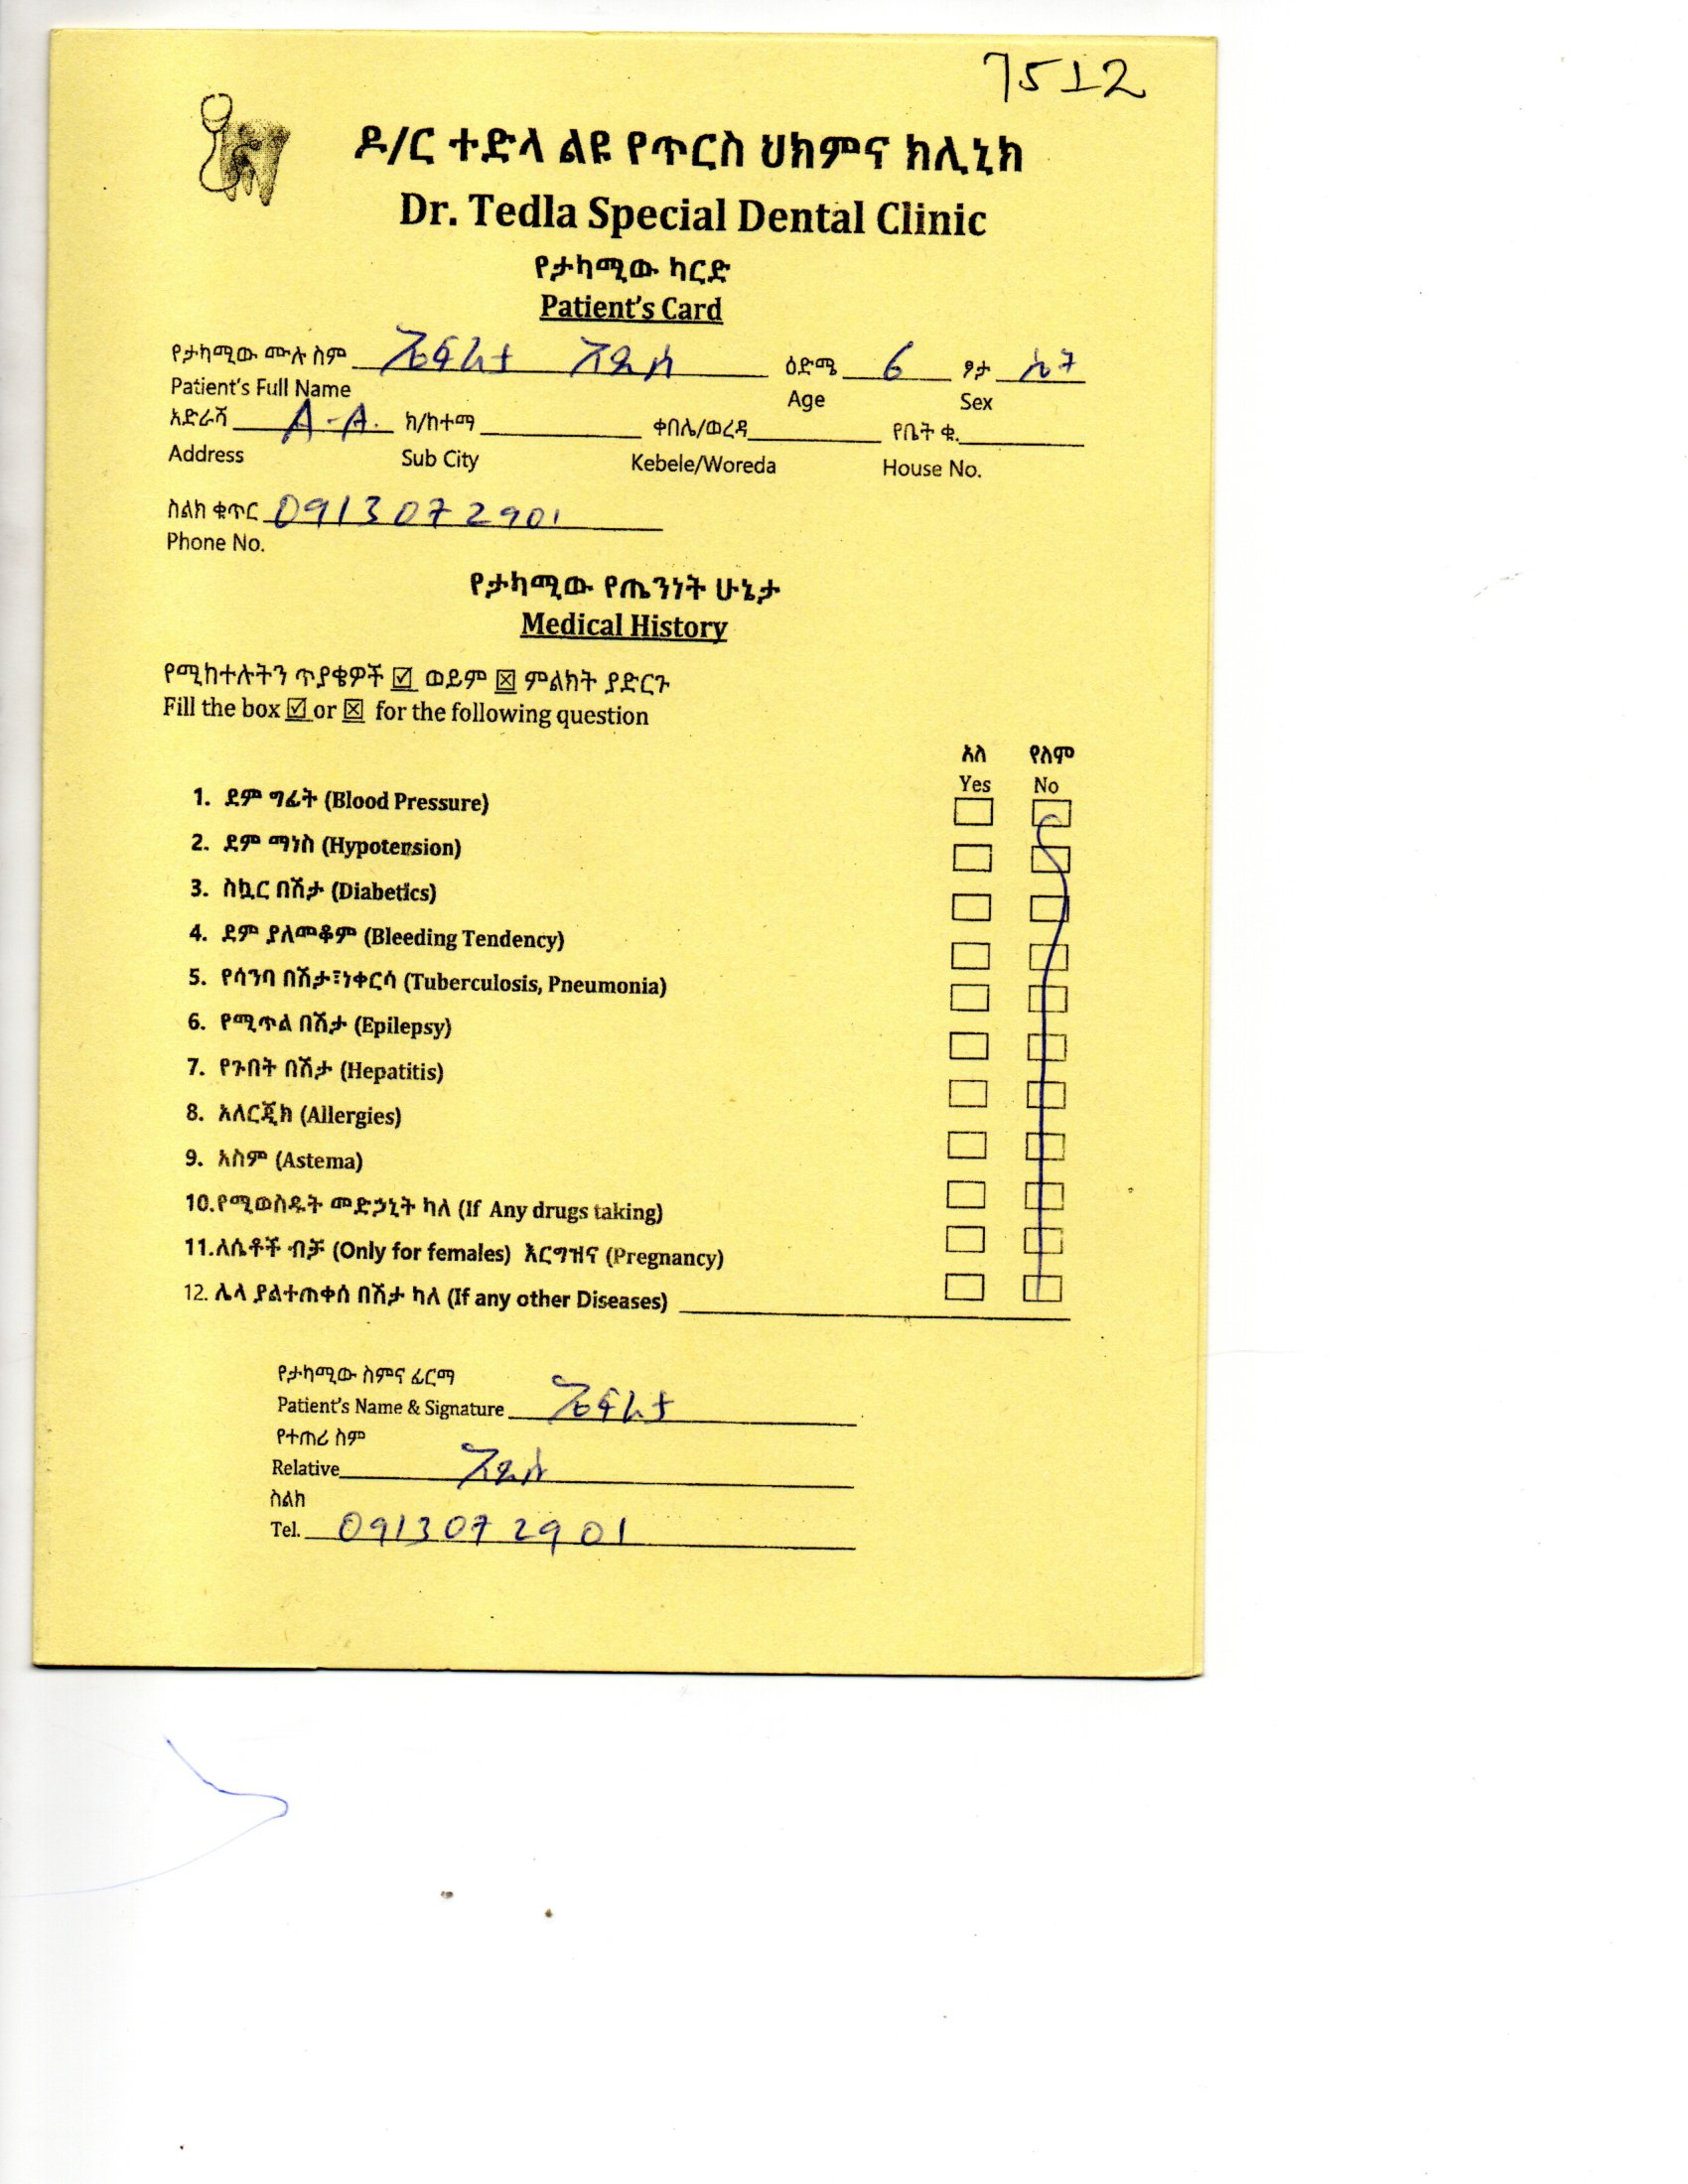 7512
ዶ/ር ተድላ ልዩ የጥርስ ህክምና ክሊኒክ
Dr. Tedla Special Dental Clinic
የታካሚው ካርድ
Patient's Card
የታካሚው ሙሉ ስም ኤፍራታ አዲሱ ዕድሜ 6 ፆታ ሴት
Patient's Full Name Age Sex
አድራሻ A-A. ክ/ከተማ ቀበሌ/ወረዳ የቤት ቁ.
Address Sub City Kebele/Woreda House No.
ስልክ ቁጥር 0913072901
Phone No.
የታካሚው የጤንነት ሁኔታ
Medical History
የሚከተሉትን ጥያቄዎች ☑ ወይም ☒ ምልክት ያድርጉ
Fill the box ☑ or ☒ for the following question
አለ የለም
Yes No
1. ደም ግፊት (Blood Pressure)
2. ደም ማነስ (Hypotension)
3. ስኳር በሽታ (Diabetics)
4. ደም ያለመቆም (Bleeding Tendency)
5. የሳንባ በሽታ፣ነቀርሳ (Tuberculosis, Pneumonia)
6. የሚጥል በሽታ (Epilepsy)
7. የጉበት በሽታ (Hepatitis)
8. አለርጂክ (Allergies)
9. አስም (Astema)
10.የሚወስዱት መድኃኒት ካለ (If Any drugs taking)
11.ለሴቶች ብቻ (Only for females) እርግዝና (Pregnancy)
12. ሌላ ያልተጠቀሰ በሽታ ካለ (If any other Diseases)
የታካሚው ስምና ፊርማ
Patient's Name & Signature ኤፍራታ
የተጠሪ ስም
Relative አዲሱ
ስልክ
Tel. 0913072901